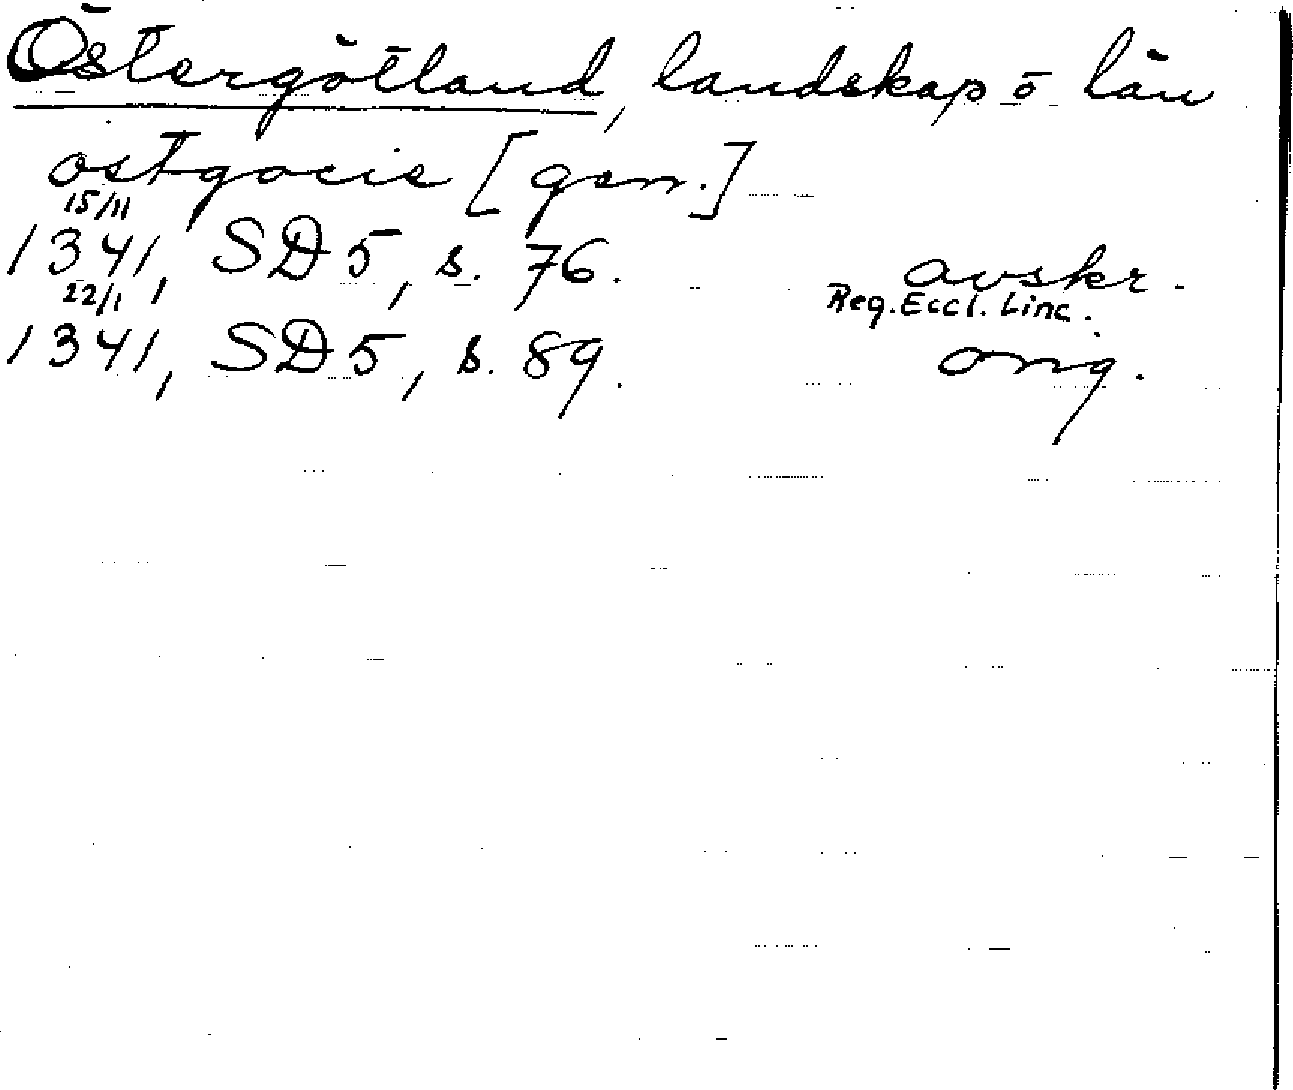 Östergötland, landskap o län
ostgocie [gen.]
15/11
1341, SD 5, s. 76. avskr.
Reg. Eccl. Linc.
22/1
1341, SD 5, s. 89. orig.